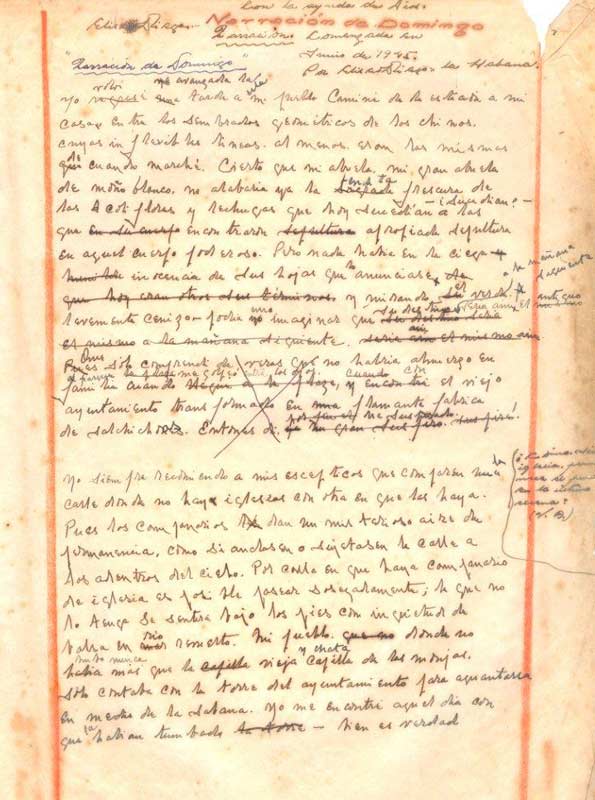 Con la ayuda de Dios.
Eliseo Diego.- Narración de Domingo
Narración Comenzada en
Junio de 1945.
"Narración de Domingo" Por Eliseo Diego - La Habana.
volví me avanzada la
Yo regresé una tarde a mi pueblo. Caminé de la estación a mi
casa entre los sembrados geométricos de los chinos.
cuyas inflexibles líneas, al menos, eran las mismas
de cuando marché. Cierto que mi abuela, mi gran abuela
de moño blanco, no alabaría ya la frescura de
las flores y lechugas que hoy sucedían a las -¿Sucedían?-
que en su cuerpo encontraron sepultura apropiada sepultura
en aquel cuerpo poderoso. Pero nada había en la ciega
humilde inocencia de sus hojas que anunciase
que hoy eran otros sus términos, y mirando su verde
levemente cenizo podía uno imaginar que su destino sería
la mañana siguiente
el mismo a la mañana siguiente. sería aún el mismo aún
Pues sólo comprendí de veras que no habría almuerzo en
familia cuando llegué a la plaza, y encontré el viejo
ayuntamiento transformado en una flamante fábrica
de salchichones. Entonces di
Yo siempre recomiendo a mis escépticos que comparen una
calle donde no haya iglesias con otra en que las haya.
Pues los campanarios dan un misterioso aire de
permanencia, como si anclasen o sujetasen la calle a
los adentros del cielo. Por calle en que haya campanario
de iglesia es posible pasear sosegadamente; la que no
lo tenga se sentirá bajo los pies con inquietud de
balsa en río revuelto. Mi pueblo, que no donde no
hubo nunca y chata
había más que la capilla vieja capilla de las monjas,
sólo contaba con la torre del ayuntamiento para aguantarse
en medio de la sabana. Yo me encontré aquel día con
que la habían tumbado la torre - bien es verdad